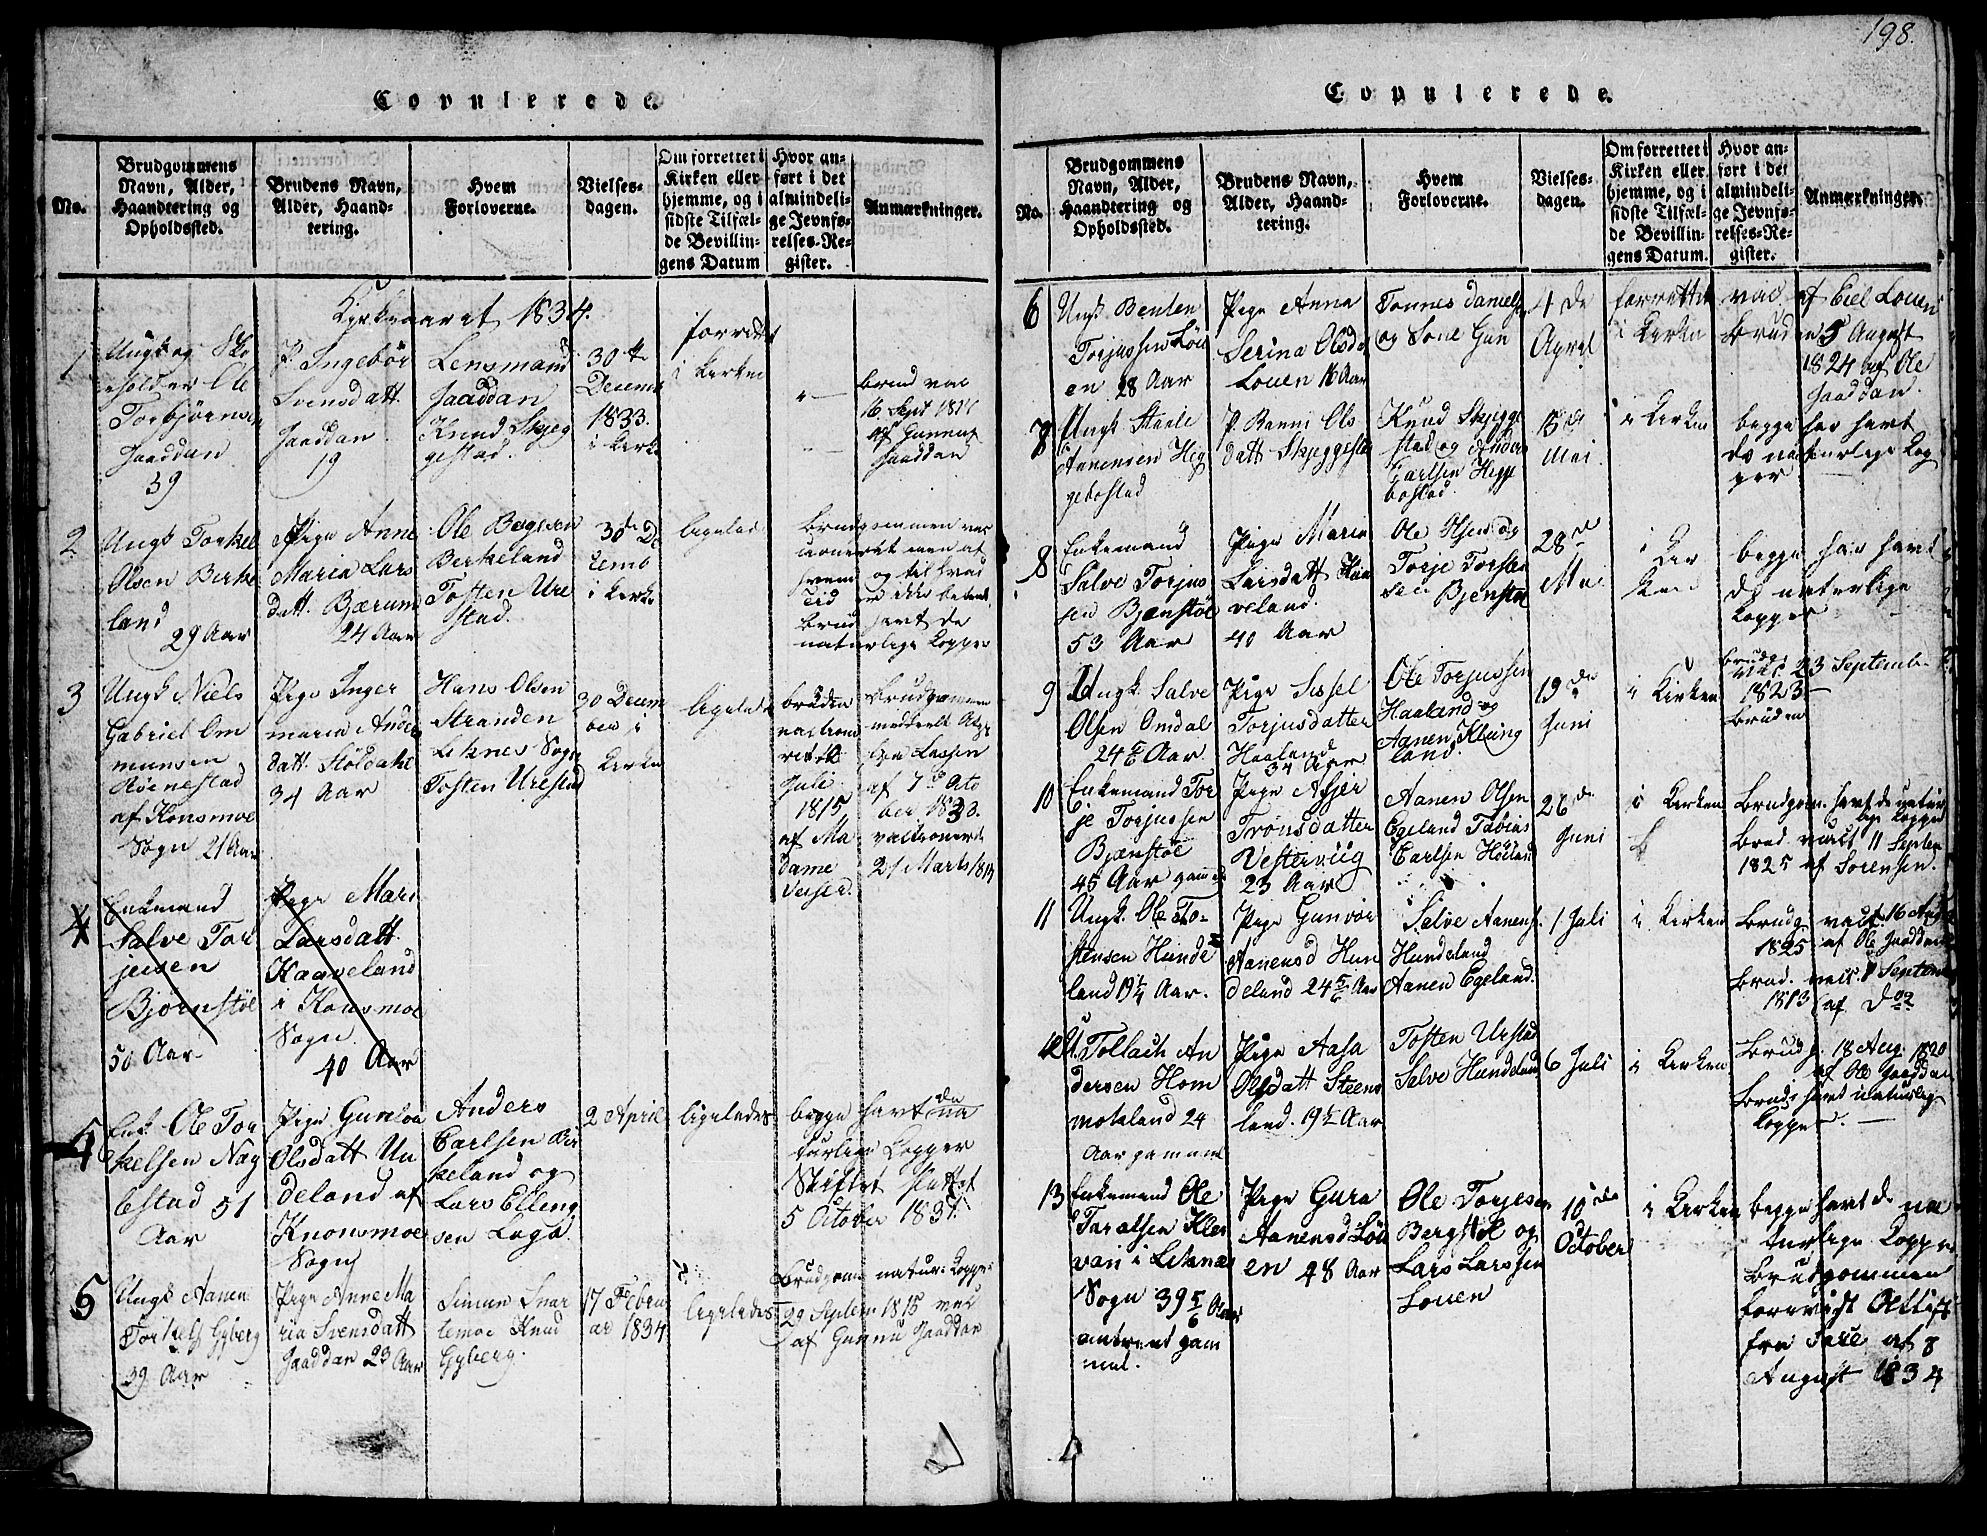 198.
Copulerede.
No.
Brudgommens Navn, Alder, Haandtering og Opholdssted.
Brudens Navn, Alder, Haandtering.
Hvem Forloverne.
Vielsesdagen.
Om forrettet i Kirken eller hjemme, og i sidste Tilfælde Bevillingens Datum
Hvor anført i det almindelige Jevnførelses-Register.
Anmærkninger.
Kirkeaaret 1834.
1
Ungk og Sko
eholder Ole
Torbjørnsen
Jaaddan
39
P. Ingebør
Svensdatt.
Jaaddan
19
Lensmand
Jaaddan
Knud Skjeg
gestad.
30te
Decemb
1833.
i Kirke
forrett
i Kirken
brud vac
16 Sept 18
af Gunnuf
Jaaddan
2
Ungk Torkel
Olsen Berke
land
29 Aar
Pige Anne
Maria Lars
datt. Bjærum
24 Aar
Ole
Berkeland
Tosten Ure
stad.
30de De
cemb
i Kirke
ligelad
Brudgommen vac
cioneret men af
hvem og til hvad
Tid er ikke
Brud havt de
naturlige Kopper
3
Ungk Niels
Gabriel Om
munsen
Høinestad
af Konsmoe
Sogn 21 Aar
Pige Inger
maria Anders
datt. Stöldahl
34 Aar
Hans Olsen
Stranden
Leknes Sogn
Tosten Urestad
30 Decem
ber i
Kirke
ligelad
bruden
vaccione
ret
Juli
1815
af Ma
dame
Brudgomen
meddeelt
Lassen
af 7de
ber 1833.
vaccioneret
21 Marts 1819
4
Enkemand
Salve Tor
jusen
Bjørnstöl
50 Aar
Pige Mari
Larsdatt.
Haaveland
i Konsmoe
Sogn.
40 Aar
4
Enk Ole Tor
kelsen Nag
lestad 51
Aar
Pige Gunloa
Olsdatt Un
deland af
Knonsmoe
Sogn
Anders
Carlsen Bir
keland og
Lars Elleng
sen Loga
2 April
ligelades
begge havt de na
turlige Kopper
Skiftet
5 October 183
5
Ungk Aanen
Torkels Gyberg
39 Aar
Pige Anne Ma
ria Svensdatt
Jaaddan 23 Aar
Simon Snar
temoe Knud
Gyberg.
17 Febru
ar 1834
ligelades
Brudgom natur. Kopper
29 Septem 1815 ved
af Gunnu Jaaddan
Copulerede.
No.
Brudgommens Navn, Alder, Haandtering og Opholdssted.
Brudens Navn, Alder, Haandtering.
Hvem Forloverne.
Vielsesdagen.
Om forrettet i Kirken eller hjemme, og i sidste Tilfælde Bevillingens Datum.
Hvor anført i det almindelige Jevnførelses-Register.
Anmærkninger.
6
Ungk Benten
Torjussen Löu
en 28 Aar
Pige Anne
Serina Olsda
Louen 16 Aar
Tonnes Daniels
og Sone Gun
4 de
Apral
forrettet
i Kirken
vac af Eiel Louen
Bruden 5 August
1824 af Ole
Jaaddan
7
Ungk Staale
Aanensen Heg
gebostad
P. Ranni Ols
datt Skjeggestad
Knud Skjegge
stad og Anders
Carlsen Hegge
bostad.
15de
Mai.
i Kirken
begge har havt
de naturlige Kop
per
8
Enkemand
Salve Torjus
sen Bjønstöl
53 Aar
Pige Maren
Larsdatt Haa
veland.
40 Aar
Ole Olsen og
Torje Torsten
sen Bjenstöl
28de
Mai
i
Kir
ken
begge har havt
de naturlige
Kopper
9
Ungk. Salve
Olsen Omdal
24 Aar
Pige Sissel
Torjusdatter
Haaland
34 Aar
Ole Torjussen
Haaland og
Aanen Klung
land.
19de
Juni
i Kirken
Brudg:
vac. 23 Septemb
1823
Bruden
10
Enkemand Tor
je Torjussen
Bjønstöl
45 Aar gammel
Pige Asjer
Tronsdatter
Vestervüg
23 Aar
Aanen Olsen
Egeland Tobias
Carlsen Höiland
26de
Juni
i Kirken
Brudgom. havt de natur
lige Kopper
Brud vact. 11 Septem
1825 af Sörensen.
11
Ungk. Ole To-
stensen Hunde
land 19¼ Aar.
Pige Gunvor
Aanensd Hun
deland 24 5/6 Aar
Salve Aanens
Hundeland
Aanen Egeland.
1 Juli
i Kirken
Brudg vact. 16 Aug
1825 af Ole Jaaddan
Brud. vact. 1 Septem
1813 af Do
12
U. Tollach An
dersen Hom
moland 24
Aar gammel
Pige Aasa
Olsdatt Steens
land. 19½ Aar
Tosten Urstad
Salve Hundeland
6 Juli
i Kirken
Brudg. 18 Aug. 1820
af Ole Jaaddan
Brud: havt naturlig
Kopper.
13
Enkemand Ole
Taralsen Kler
vari i Leknæs
Sogn 39 5/6 Aar
gam
mel.
Pige Gura
Aanensd Löu
en 48 Aar
Ole Torjesen
Bergstöl og
Lars Larssen
Louen
10de
October
i Kirken
begge havt de na
turlige Kopper
Brudgommen
forevist Attest
fra af 8
August 1834